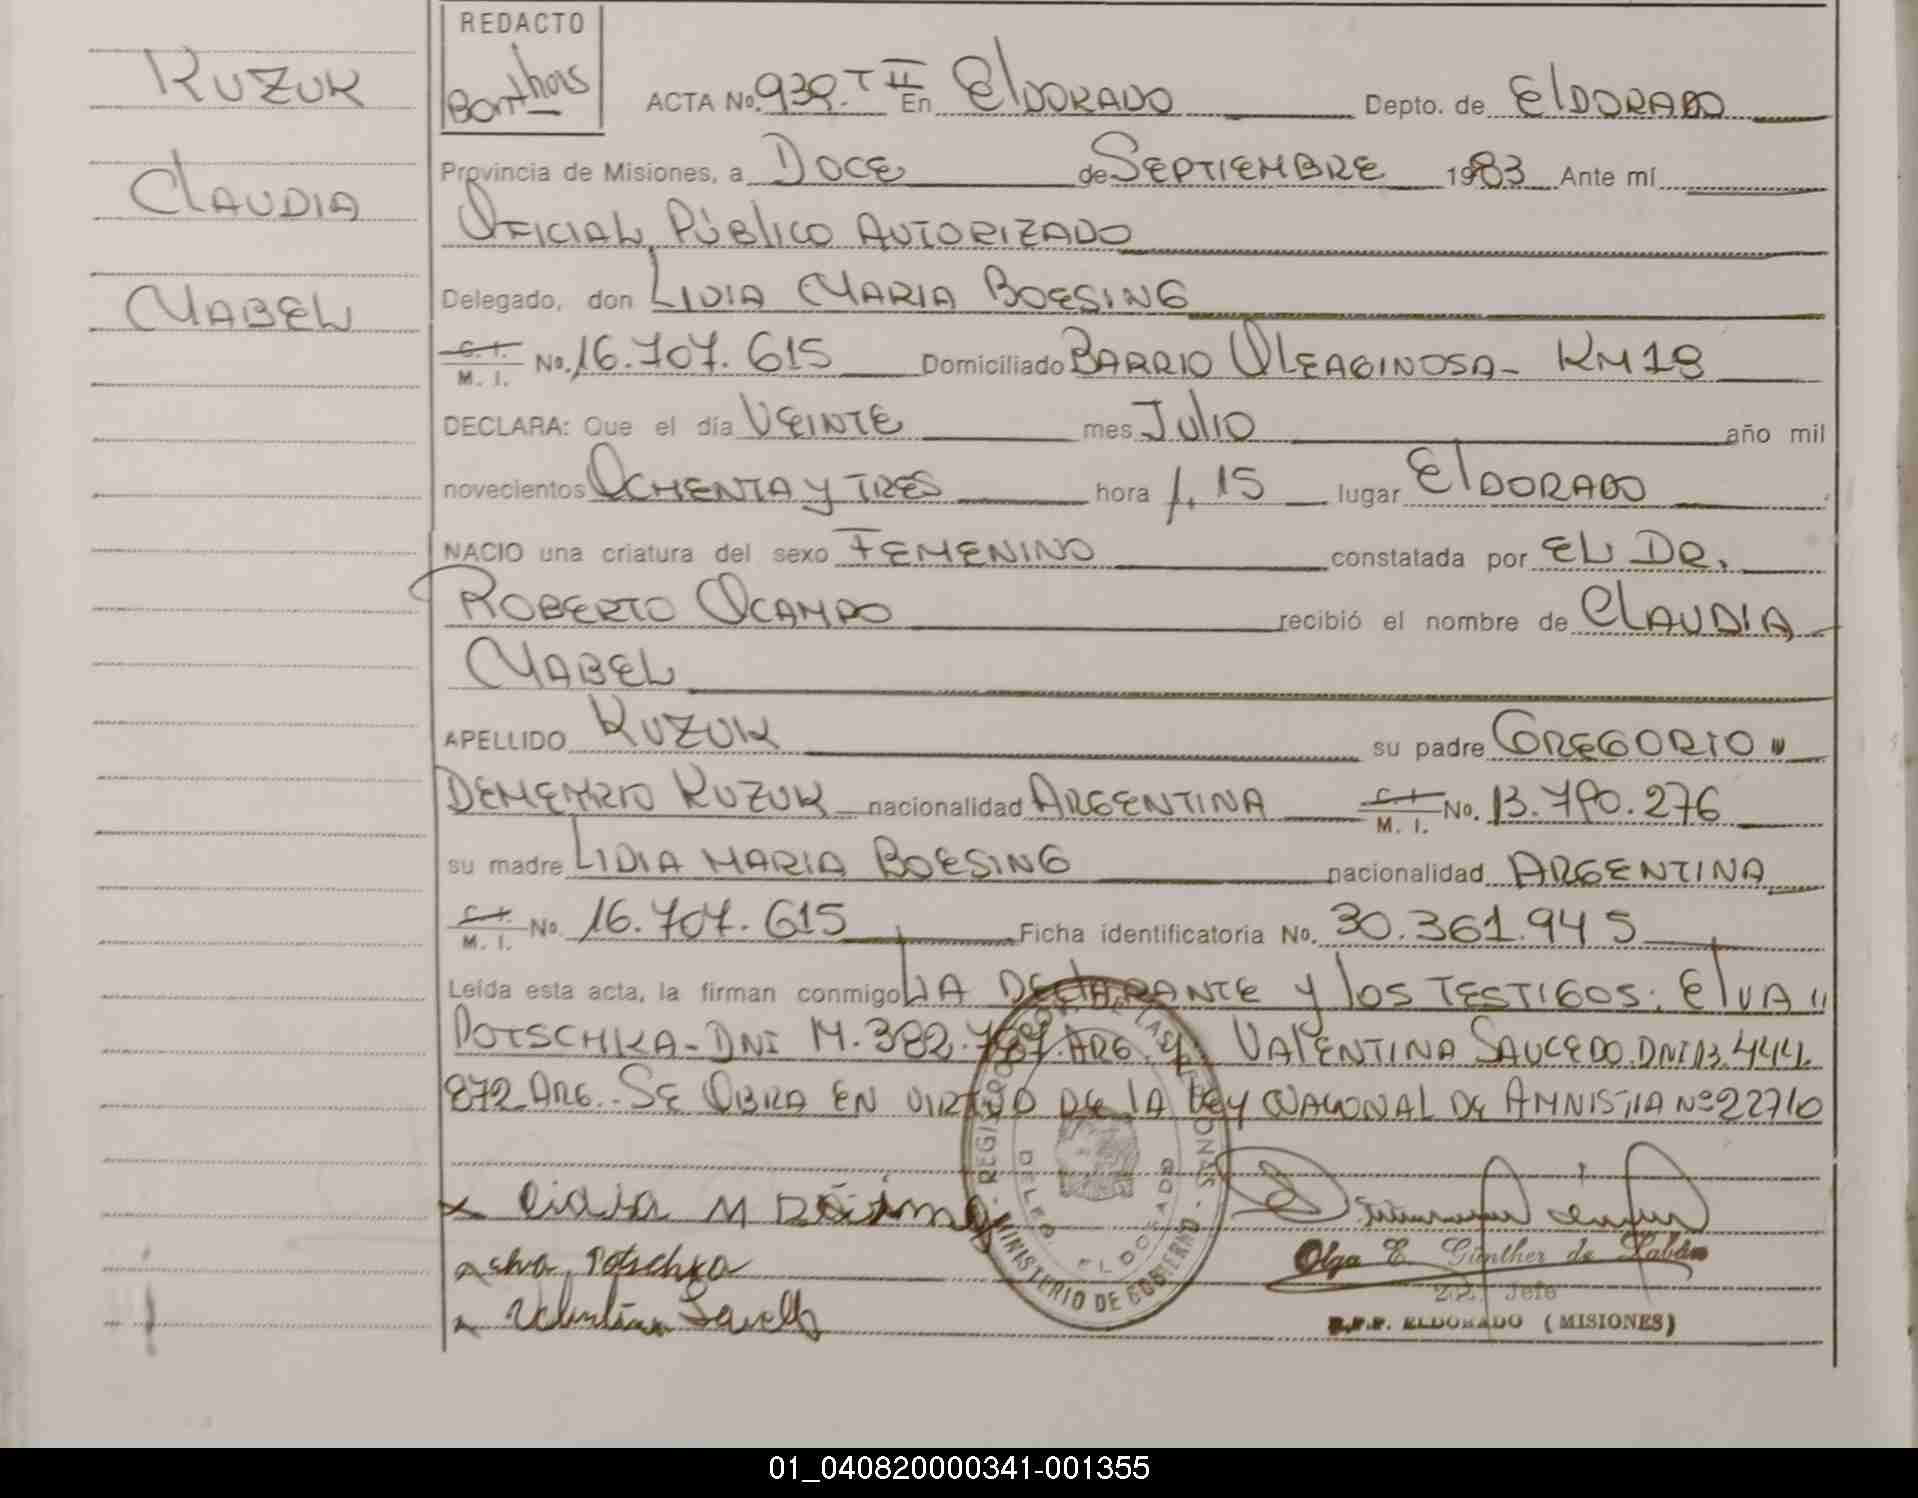 KUZUK
CLAUDIA
MABEL
REDACTO
ACTA No. 939. T II En ElDORADO Depto. de ElDORADO
Provincia de Misiones, a DOCE de SEPTIEMBRE 1983 Ante mí
OFICIAL PÚBlICO AUTORIZADO
Delegado, don LIDIA MARIA BOESING
C. I.
M. I. No. 16.707.615 Domiciliado BARRIO OLEAGINOSA - KM 18
DECLARA: Que el día VEINTE mes JUlIO año mil
novecientos OCHENTA y TRES hora 1.15 lugar ElDORADO
NACIO una criatura del sexo FEMENINO constatada por EL DR.
ROBERTO OCAMPO recibió el nombre de CLAUDIA
MABEL
APELLIDO KUZUK su padre GREGORIO "
DEMETRIO KUZUK nacionalidad ARGENTINA C. I.
M. I. No. 13.790.276
su madre LIDIA MARIA BOESING nacionalidad ARGENTINA
C. I.
M. I. No. 16.707.615 Ficha identificatoria No. 30.361.945
Leída esta acta, la firman conmigo LA DEClARANTE y lOS TESTIGOS: ElVA "
POTSCHKA - DNI ARG. y VALENTINA SAUCEDO. DNI 13.444.
872 ARG. - SE OBRA EN VIRTUD DE lA LEY NACIONAL DE AMNISTIA Nº 22710
REGISTRO PROV. DE LAS PERSONAS - MINISTERIO DE GOBIERNO
DELEG ELDORADO
x Lidia M Boësing
x elva Potschka
x
Olga E. Günther de
Jefe
R.P.P. ELDORADO (MISIONES)
01_040820000341-001355